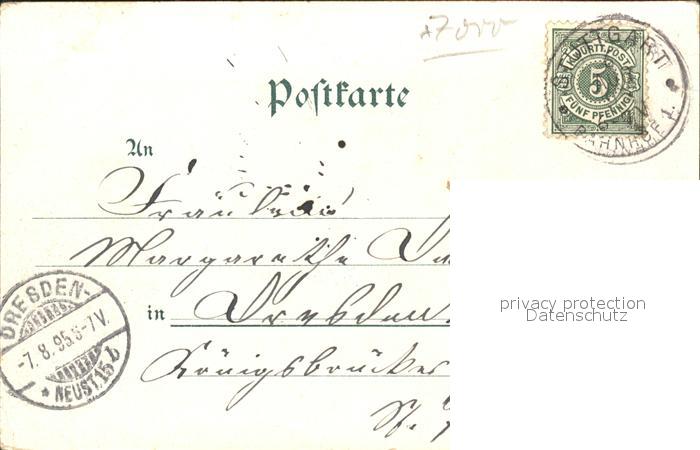 STUTTGART
BAHNHOF 1.
K. WÜRTT. POST
5
FÜNF PFENNIG
Postkarte
An
Fräulein
Margarethe
in Dresden.
Königsbrücker
St.
DRESDEN-
-7.8.95.6-7V.
* NEUST.15b
privacy protection
Datenschutz